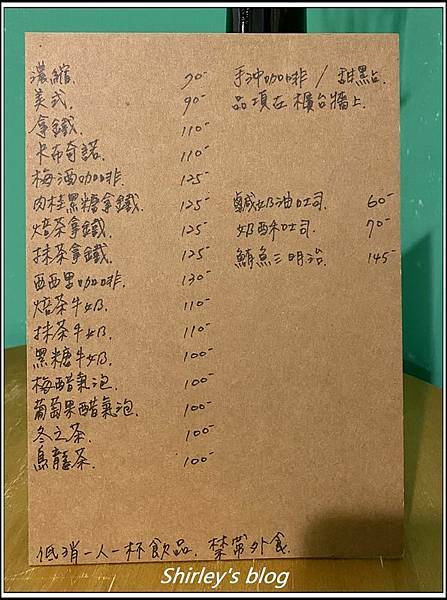 濃縮. 90-
美式. 90-
拿鐵. 110-
卡布奇諾. 110-
梅酒咖啡. 125-
肉桂黑糖拿鐵. 125-
焙茶拿鐵. 125-
抹茶拿鐵. 125-
西西里咖啡. 130-
焙茶牛奶. 110-
抹茶牛奶. 110-
黑糖牛奶. 100-
梅醋氣泡. 100-
葡萄果醋氣泡. 100-
冬之茶. 100-
烏龍茶. 100-
手沖咖啡 / 甜點.
品項在櫃台牆上.
鹹奶油吐司. 60-
奶酥吐司. 70-
鮪魚三明治. 145-
低消一人一杯飲品. 禁帶外食.
Shirley's blog